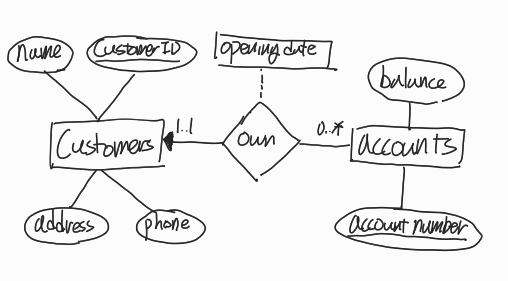 name
CustomerID
opening date
balance
1..1
0..*
Customers
own
accounts
address
phone
account number